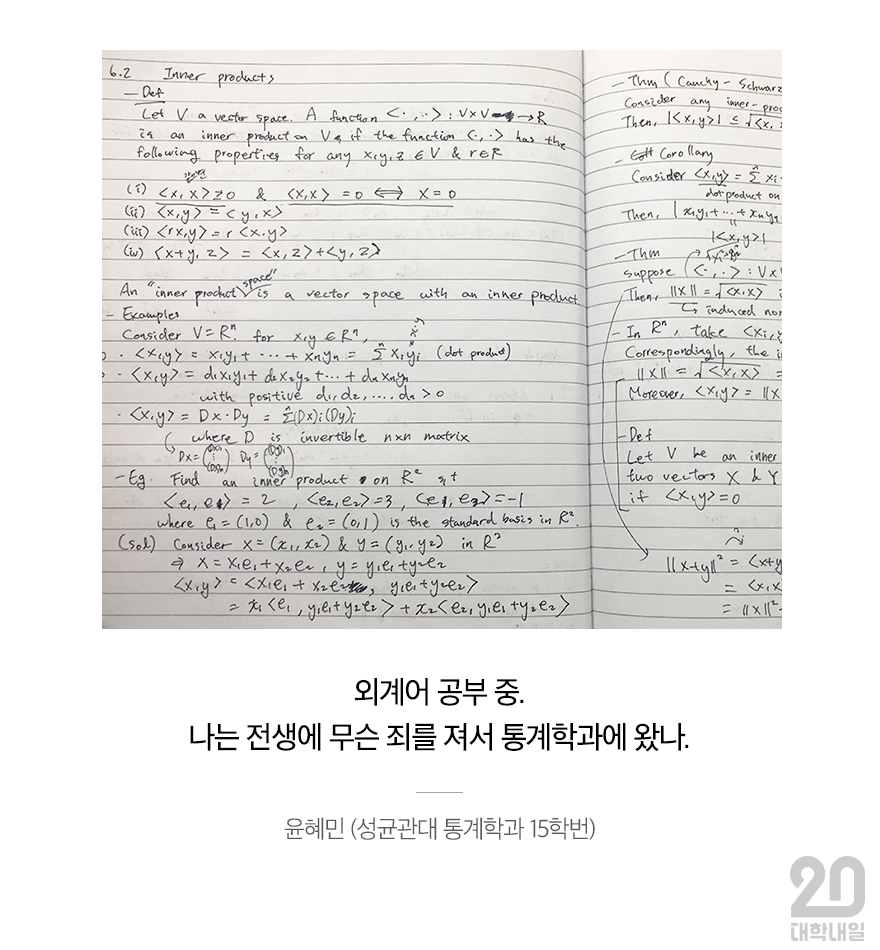 6.2 Inner products
- Def
Let V a vector space. A function <·,·> : V×V → R
is an inner product on V if the function <·,·> has the
following properties for any x,y,z ∈ V & r∈R
(i) <x,x> ≥ 0 & <x,x> = 0 ⟺ x=0
(ii) <x,y> = <y,x>
(iii) <rx,y> = r<x,y>
(iv) <x+y, z> = <x,z>+<y,z>
An "inner product space" is a vector space with an inner product
- Examples
Consider V=Rⁿ. for x,y ∈ Rⁿ,
· <x,y> = x₁y₁ + ··· + xₙyₙ = Σⁿ xᵢyᵢ (dot product)
· <x,y> = d₁x₁y₁ + d₂x₂y₂ + ··· + dₙxₙyₙ
with positive d₁, d₂, ..., dₙ > 0
· <x,y> = Dx · Dy = Σⁿ(Dx)ᵢ(Dy)ᵢ
where D is invertible n×n matrix
Dx = ((Dx)₁ ⋮ (Dx)ₙ) Dy = ((Dy)₁ ⋮ (Dy)ₙ)
- Eg. Find an inner product on R² s,t
<e₁, e₁> = 2 , <e₂,e₂> = 3 , <e₁, e₂> = -1
where e₁ = (1,0) & e₂ = (0,1) is the standard basis in R².
(sol) Consider x = (x₁,x₂) & y = (y₁,y₂) in R²
⇒ x = x₁e₁ + x₂e₂ , y = y₁e₁+y₂e₂
<x,y> = <x₁e₁ + x₂e₂, y₁e₁+y₂e₂>
= x₁<e₁, y₁e₁+y₂e₂> + x₂<e₂, y₁e₁+y₂e₂>
- Thm (Cauchy - Schwarz
Consider any inner-proc
Then, |<x,y>| ≤ √<x,
- Corollary
Consider <x,y> = Σⁿ xᵢ
dot product on
Then, |x₁y₁ + ··· + xₙyₙ
||
|<x,y>|
- Thm
suppose <·,·> : V×
Then, ||x|| = √<x,x> i
induced nor
- In Rⁿ, take <x,y
Correspondingly, the i
||x|| = √<x,x> =
Moreover, <x,y> = ||x
- Def
Let V be an inner
two vectors x & y
if <x,y> = 0
||x+y||² = <x+y
= <x,x
= ||x||²
외계어 공부 중.
나는 전생에 무슨 죄를 져서 통계학과에 왔나.
윤혜민 (성균관대 통계학과 15학번)
20
대학내일